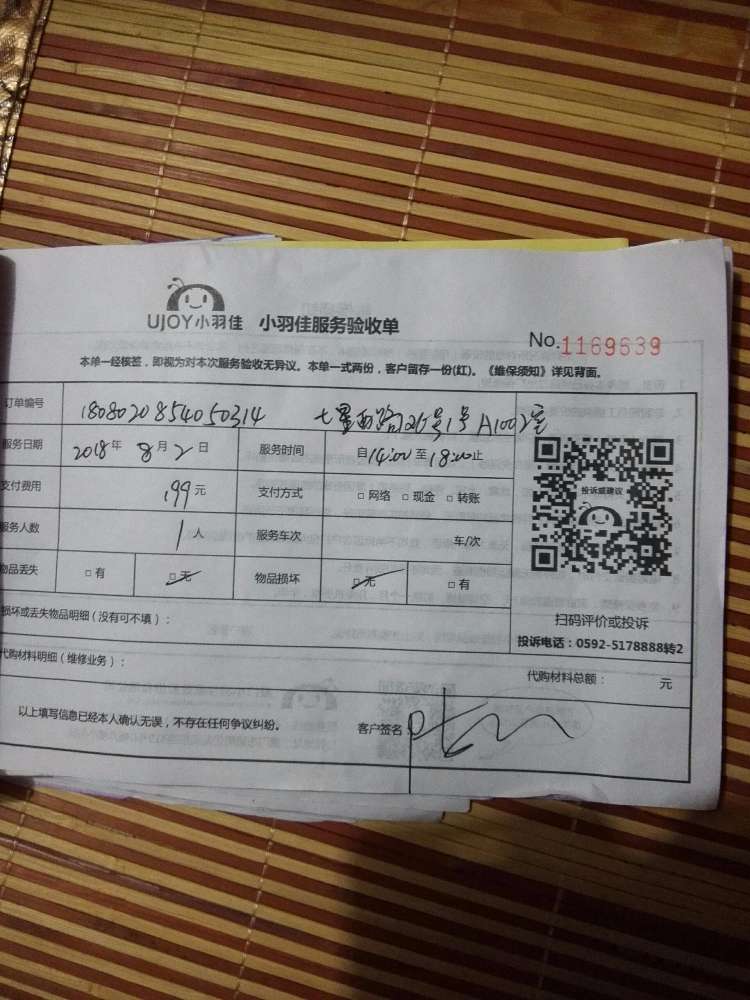 UJOY小羽佳 小羽佳服务验收单
No.1169639
本单一经核签，即视为对本次服务验收无异议。本单一式两份，客户留存一份(红)。《维保须知》详见背面。
订单编号 1808020854050314 七星西路26号1号A1002室
服务日期 2018年8月2日 服务时间 自14:00至18:00止
支付费用 199元 支付方式 □网络 □现金 □转账
服务人数 1人 服务车次 车/次
物品丢失 □有 □无 物品损坏 □无 □有
投诉或建议
扫码评价或投诉
投诉电话：0592-5178888转2
损坏或丢失物品明细（没有可不填）：
代购材料明细（维修业务）：
代购材料总额： 元
以上填写信息已经本人确认无误，不存在任何争议纠纷。 客户签名：